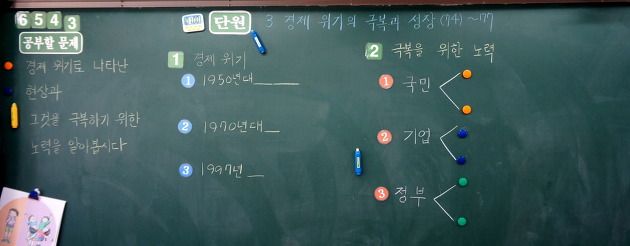 6 5 4 3
공부할 문제
경제 위기로 나타난
현상과
그것을 극복하기 위한
노력을 알아봅시다
단원 3 경제 위기의 극복과 성장 (74)~77
1 경제 위기
1 1950년대
2 1970년대
3 1997년
2 극복을 위한 노력
1 국민
2 기업
3 정부